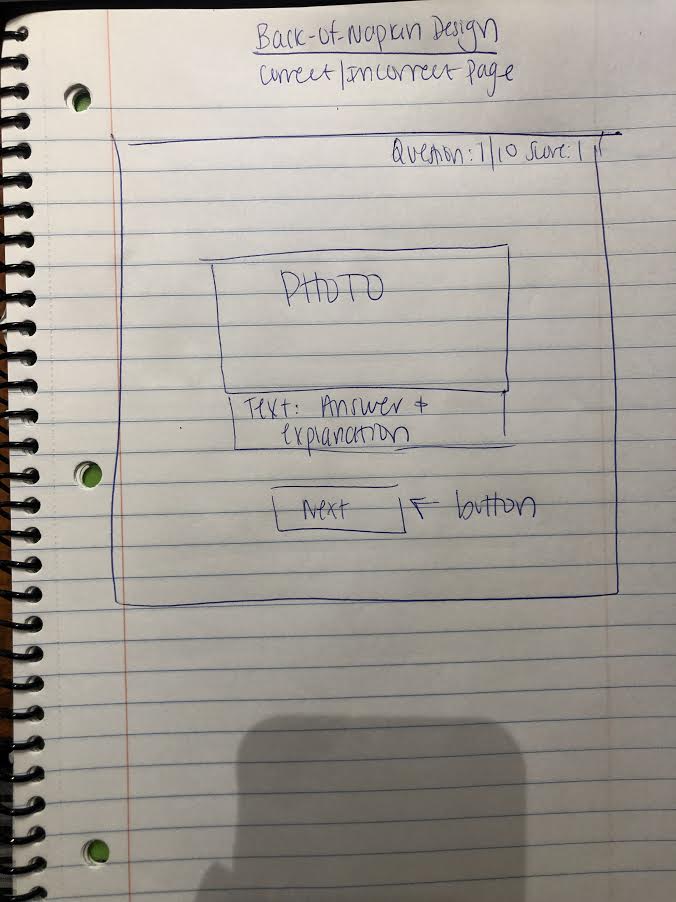 Back-of-Napkin Design
Correct/Incorrect Page
Question: 1/10 Score: 1
PHOTO
Text: Answer +
explanation
Next ← button